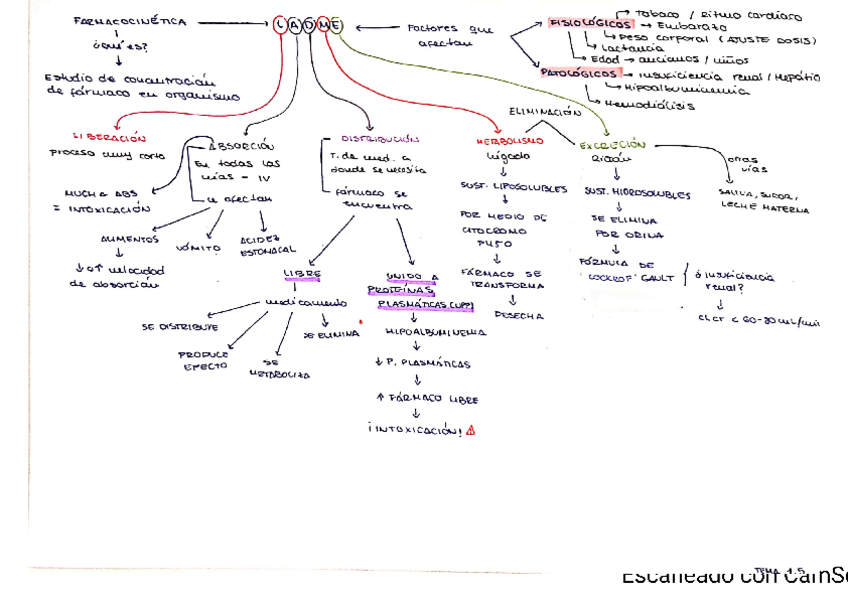 FARMACOCINÉTICA → LADME ← Factores que afectan
FISIOLÓGICOS → Tabaco / Ritmo cardíaco
→ Embarazo
Peso corporal (AJUSTE DOSIS)
Lactancia
Edad → ancianos / niños
PATOLÓGICOS → Insuficiencia renal / Hepática
Hipoalbuminemia
Hemodiálisis
¿qué es?
Estudio de concentración
de fármaco en organismo
LIBERACIÓN
proceso muy corto
ABSORCIÓN
En todas las
vías - IV
le afectan
MUCHA ABS
= INTOXICACIÓN
ALIMENTOS
↓ o ↑ velocidad
de absorción
VÓMITO
ACIDEZ
ESTOMACAL
DISTRIBUCIÓN
T. de med. a
donde se necesita
fármaco se
encuentra
LIBRE
medicamento
SE DISTRIBUYE
PRODUCE
EFECTO
SE
METABOLIZA
SE ELIMINA
UNIDO A
PROTEÍNAS
PLASMÁTICAS (UPP)
HIPOALBUMINEMIA
↓ P. PLASMÁTICAS
↑ FÁRMACO LIBRE
¡INTOXICACIÓN! ⚠
ELIMINACIÓN
METABOLISMO
hígado
SUST. LIPOSOLUBLES
POR MEDIO DE
CITOCROMO
P450
FÁRMACO SE
TRANSFORMA
DESECHA
EXCRECIÓN
Riñón
SUST. HIDROSOLUBLES
SE ELIMINA
POR ORINA
FÓRMULA DE
"COCKROF" GAULT
¿insuficiencia
renal?
ClCr < 60-80 mL/min
otras
vías
SALIVA, SUDOR,
LECHE MATERNA
TEMA 1.5
Escaneado con CamSc